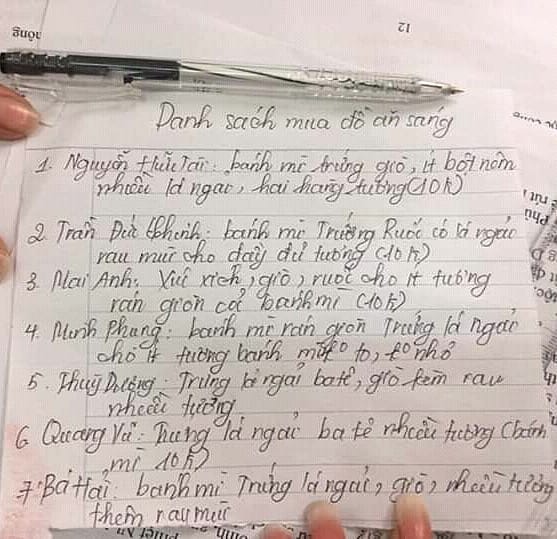 12
Danh sách mua đồ ăn sáng
1. Nguyễn Hữu Tài: bánh mì trứng giò, ít bột nêm
nhiều lá ngải, hai hàng tương (10k)
2. Trần Đức Chinh: bánh mì Trứng Ruốc có lá ngải
rau mùi cho đầy đủ tương (10k)
3. Mai Anh: Xúc xích, giò, ruốc cho ít tương
rán giòn cả bánh mì (10k)
4. Minh Phung: bánh mì rán giòn Trứng lá ngải
cho ít tương bánh to, nhỏ
5. Thuỳ Dương: Trứng lá ngải batê, giò kèm rau
nhiều tương
6 Quang Vũ: Trứng lá ngải ba tê nhiều tương (bánh
mì 10k)
7. Bá Hải: bánh mì Trứng lá ngải, giò, nhiều tương
thêm rau mùi